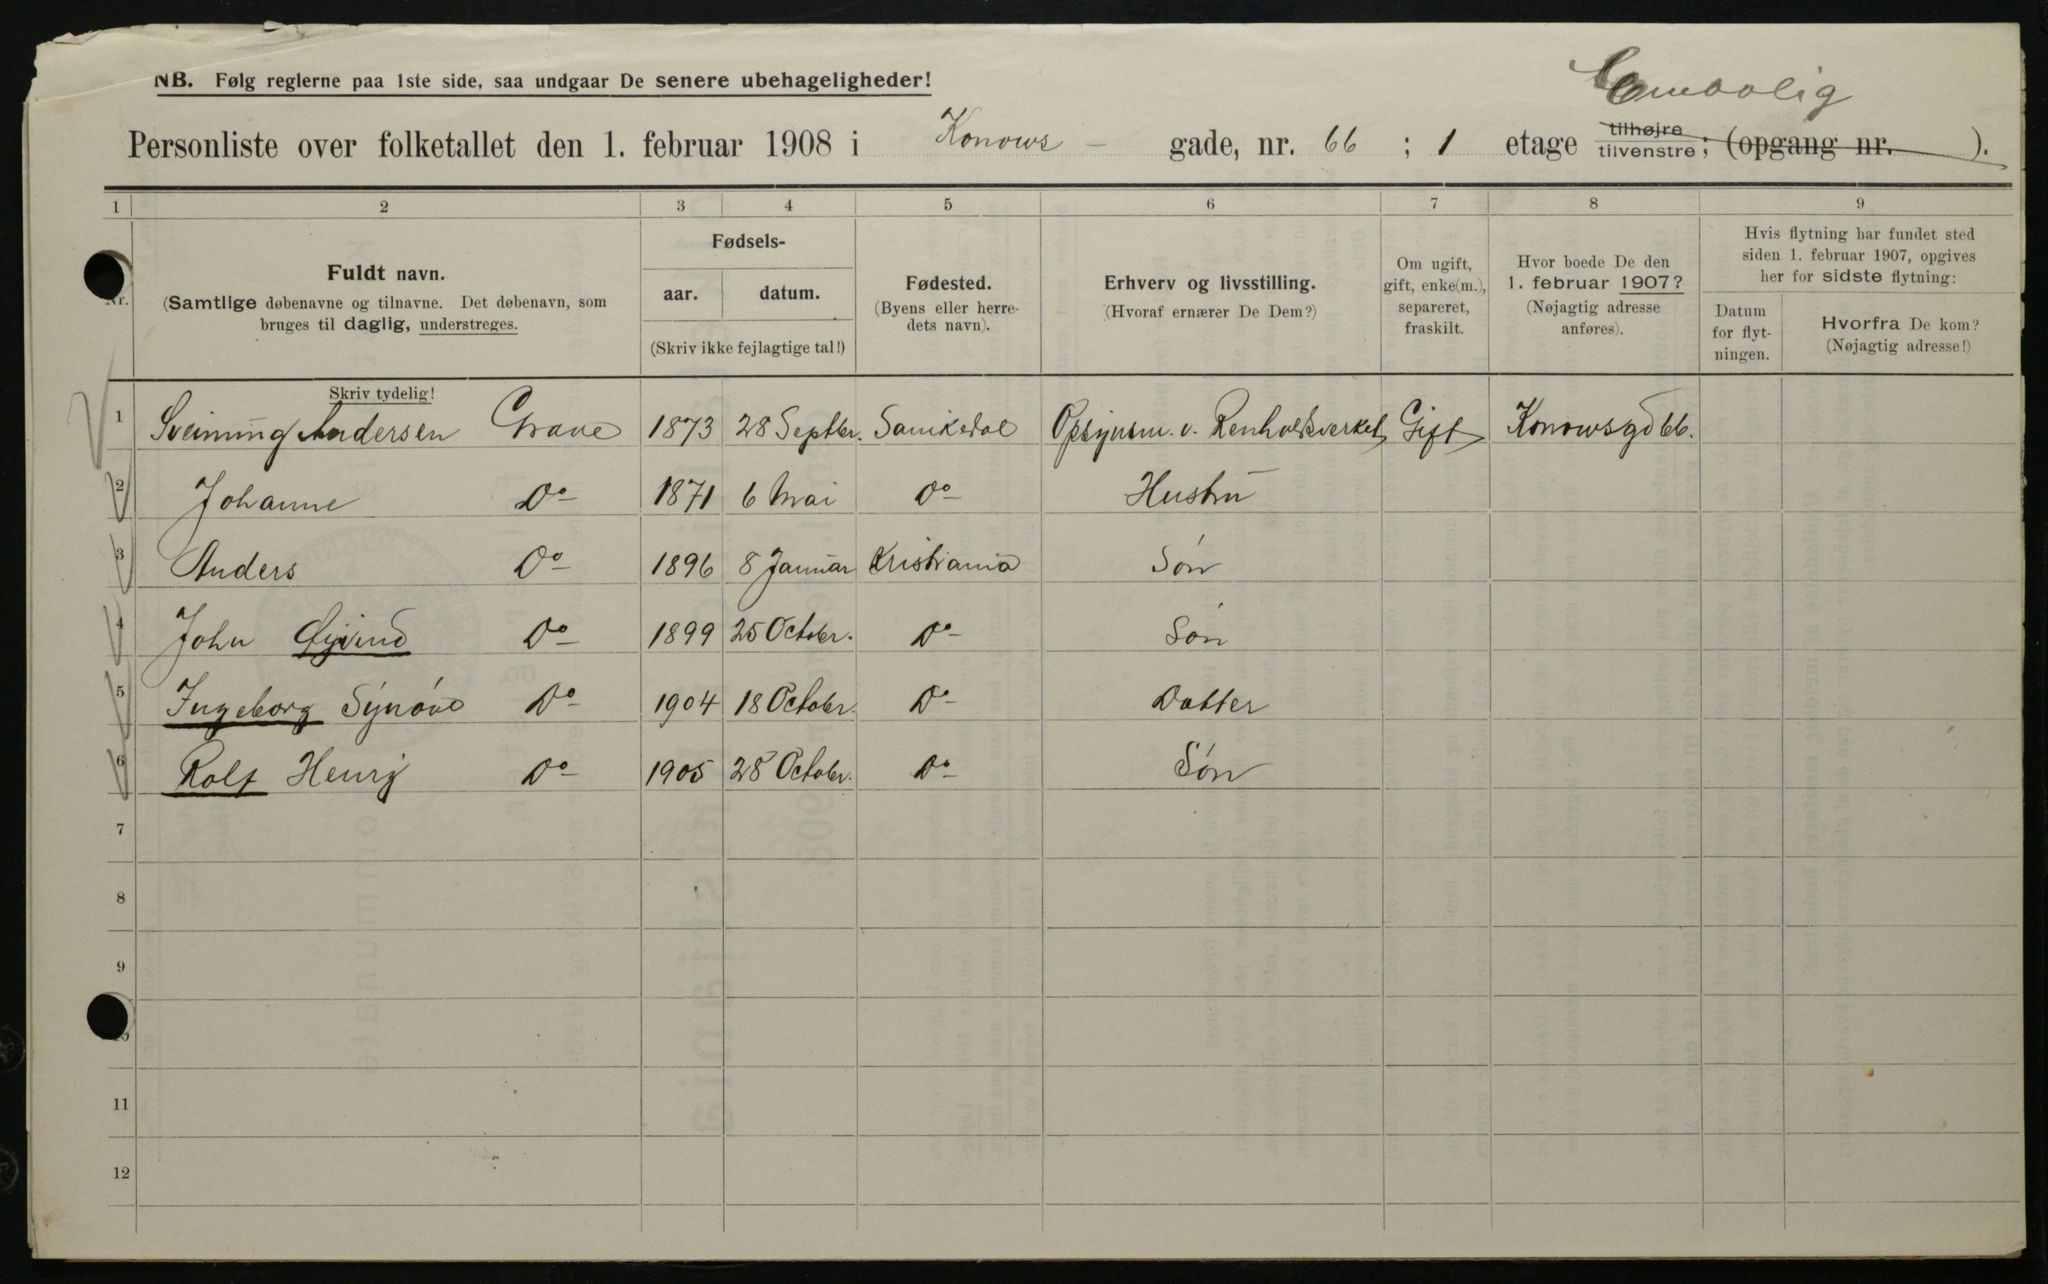 NB. Følg reglerne paa 1ste side, saa undgaar De senere ubehageligheder!
Personliste over folketallet den 1. februar 1908 i Konows - gade, nr. 66 ; 1 etage tilhøjre tilvenstre; (opgang nr. ).
1 2 3 4 5 6 7 8 9
Nr.
Fuldt navn.
(Samtlige døbenavne og tilnavne. Det døbenavn, som
bruges til daglig, understreges.
Skriv tydelig!
Fødsels-
aar. datum.
(Skriv ikke fejlagtige tal!)
Fødested.
(Byens eller herre-
dets navn).
Erhverv og livsstilling.
(Hvoraf ernærer De Dem?)
Om ugift,
gift, enke(m.),
separeret,
fraskilt.
Hvor boede De den
1. februar 1907?
(Nøjagtig adresse
anføres).
Hvis flytning har fundet sted
siden 1. februar 1907, opgives
her for sidste flytning:
Datum
for flyt-
ningen.
Hvorfra De kom?
(Nøjagtig adresse!)
1 Sveinung Andersen Grave 1873 28 Septbr. Sanikedal Opsynsm. v. Renholdsverket Gift Konowsgd 66.
2 Johanne Do 1871 6 Mai Do Hustru
3 Anders Do 1896 8 Januar Kristiania Søn
4 John Øyvind Do 1899 25 Octobr. Do Søn
5 Ingeborg Synöve Do 1904 18 Octobr. Do Datter
6 Rolf Henry Do 1905 28 Octobr. Do Søn
7
8
9
10
11
12